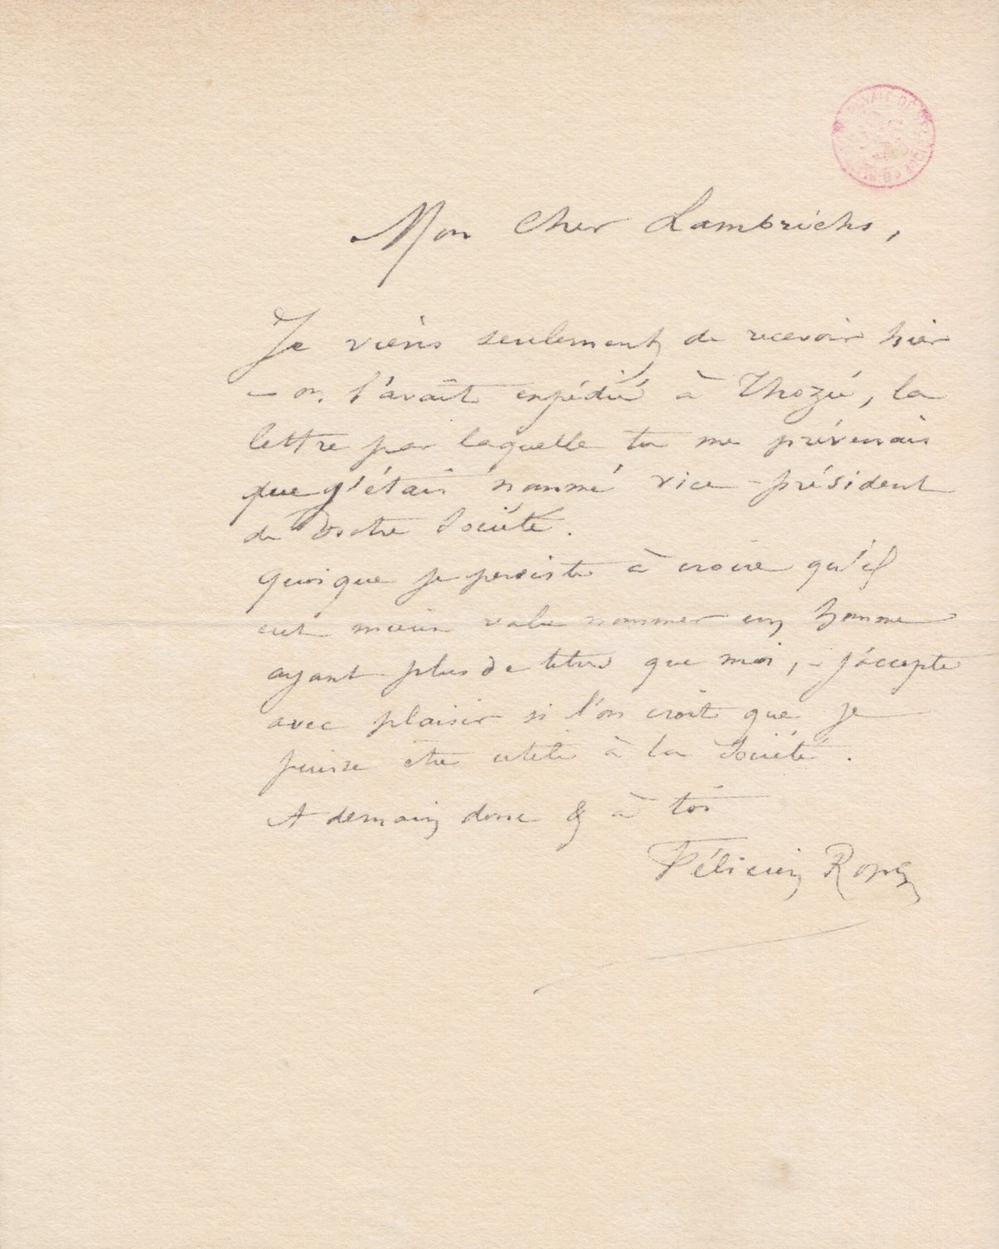 Mon Cher Lambrichs,
Je viens seulement de recevoir hier
– on l'avait expédié à Thozée, la
lettre par laquelle tu me prévenais
que j'étais nommé vice-président
de Votre Société.
Quoique je persiste à croire qu'il
eut mieux valu nommer un homme
ayant plus de titres que moi, – j'accepte
avec plaisir si l'on croit que je
puisse être utile à la Société.
A demain donc & à toi
Félicien Rops